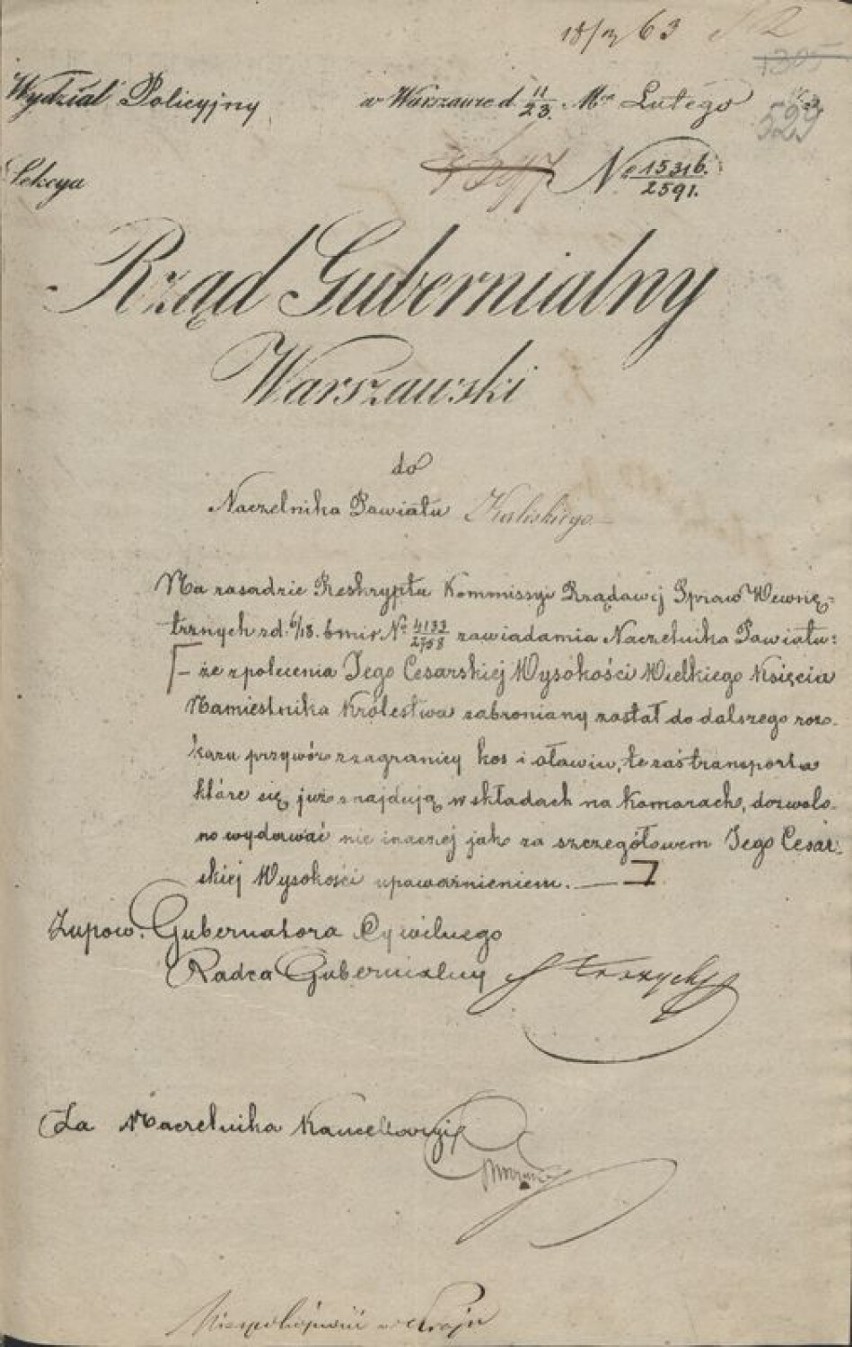 18/3 63
1305
529
Wydział Policyjny
w Warszawie d. 11/23. Mca Lutego
Sekcya
No 15316./2591.
Rząd Gubernialny
Warszawski
do
Naczelnika Powiatu Kaliskiego
Na zasadzie Reskryptu Kommissyi Rządowej Spraw Wewnę-
trznych z d. 6/18. b m i r No 4132/2758 zawiadamia Naczelnika Powiatu:
– że z polecenia Jego Cesarskiej Wysokości Wielkiego Księcia
Namiestnika Królestwa zabroniony został do dalszego roz-
kazu przywóz z zagranicy kos i ołowiu, te zaś transporta
które się już znajdują w składach na Komorach, dozwolo-
no wydawać nie inaczej jak za szczegółowem Jego Cesar-
skiej Wysokości upoważnieniem. —
Z upow. Gubernatora Cywilnego
Radca Gubernialny
Za Naczelnika Kancellaryi
w Kraju